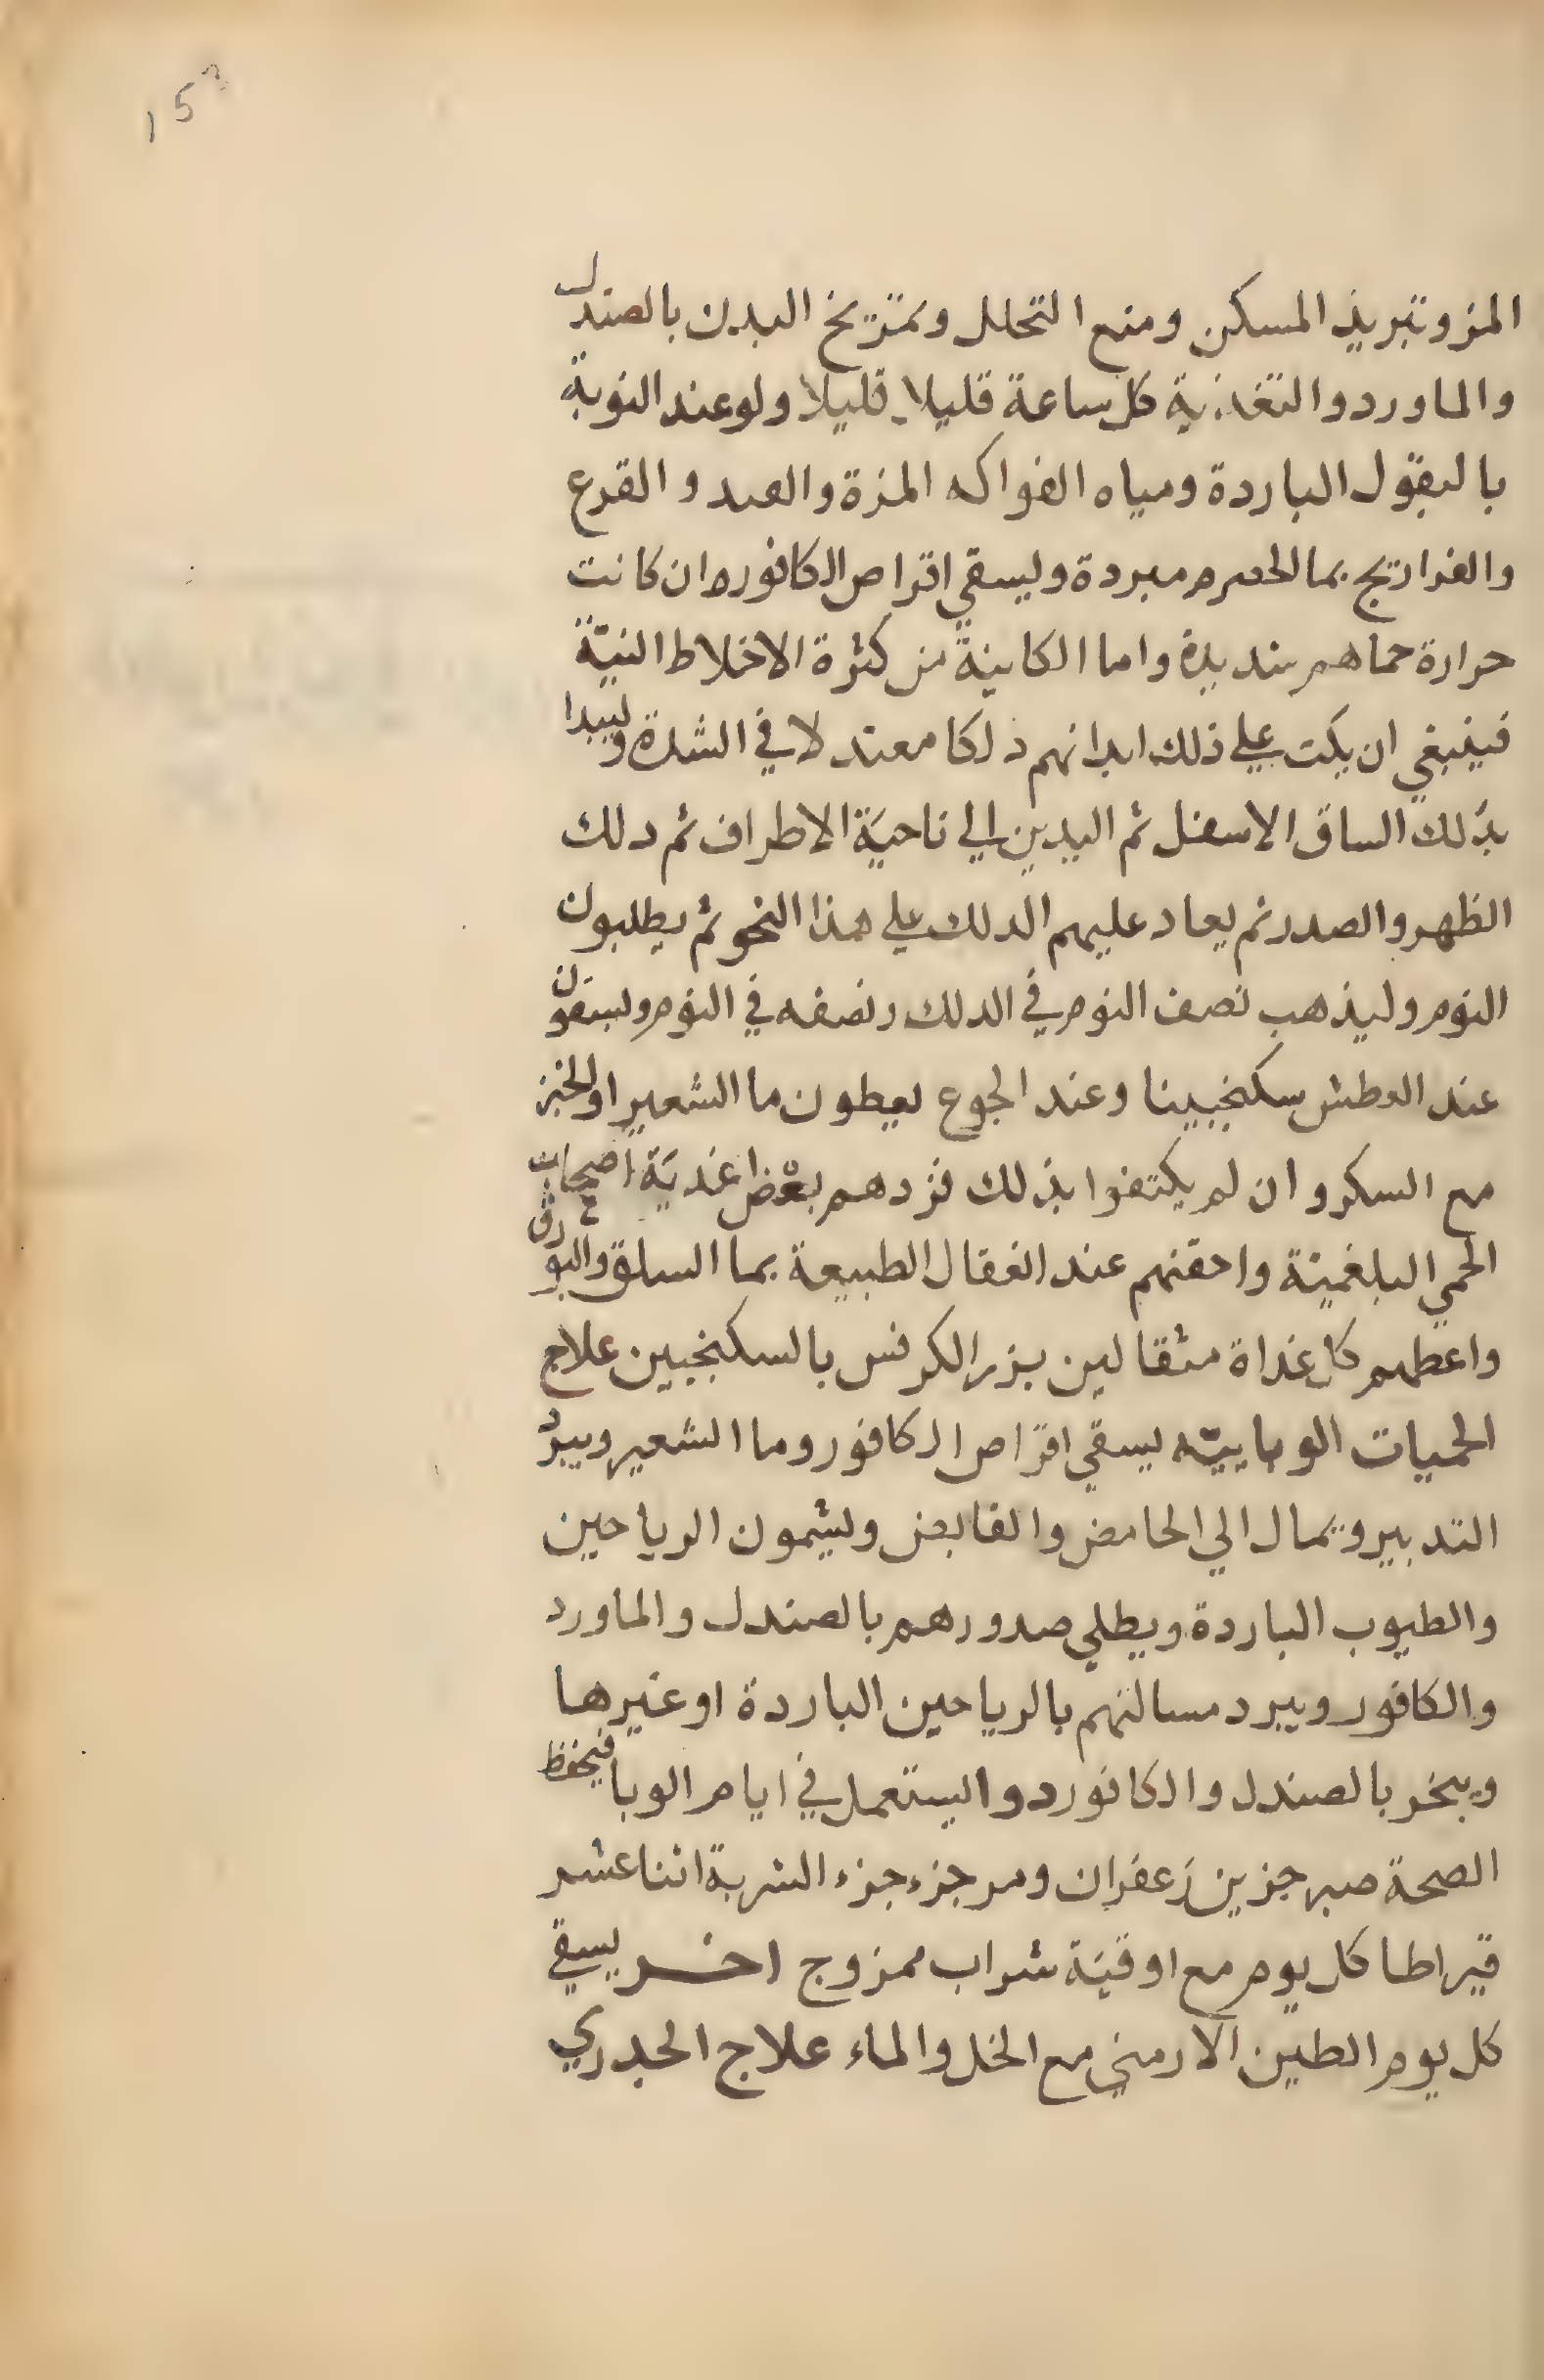 153
المز وتبريد المسكن ومنع التحلل وتمريخ البدن بالصندل
والماورد والتغذية كل ساعة قليلا قليلا ولو عند النوبة
بالبقول الباردة ومياه الفواكه المزة والعد و القرع
والفراريج بما الحصرم مبردة وليسقي اقراص الكافور ان كانت
حرارة حماهم شديدة واما الكاينة من كثرة الاخلاط النيّة
فينبغي ان علي ذلك ابدانهم دلكا معتدلا في الشدة وليبدا
بدلك الساق الاسفل ثم اليدين الي ناحية الاطراف ثم دلك
الظهر والصدر ثم يعاد عليهم الدلك علي هذا النحو ثم يطلبون
النوم وليذهب نصف النوم في الدلك ونصفه في النوم وليسقون
عند العطش سكنجبينا وعند الجوع يعطون ما الشعير او الخبز
مع السكر وان لم يكتفوا بذلك فزدهم بعض اغدية اصحاب
الحمي البلغمية واحقنهم عند انعقال الطبيعة بما السلق والبورق
واعطهم كل غداة مثقالين بزر الكرفس بالسكنجبين علاج
الحميات الوباييّه يسقي اقراص الكافور وما الشعير ويبرد
التدبير ويمال الي الحامض والقابض وليشمون الرياحين
والطيوب الباردة ويطلي صدورهم بالصندل والماورد
والكافور ويبرد مسالنهم بالرياحين الباردة او غيرها
ويبخر بالصندل والكافور دوا ليستعمل في ايام الوبا فيحفظ
الصحة صبر جزين زعفران ومر جزء جزء الشربة اثنا عشر
قيراطا كل يوم مع اوقية شراب ممزوج اخر يسقي
كل يوم الطين الارمني مع الخل والماء علاج الجدري